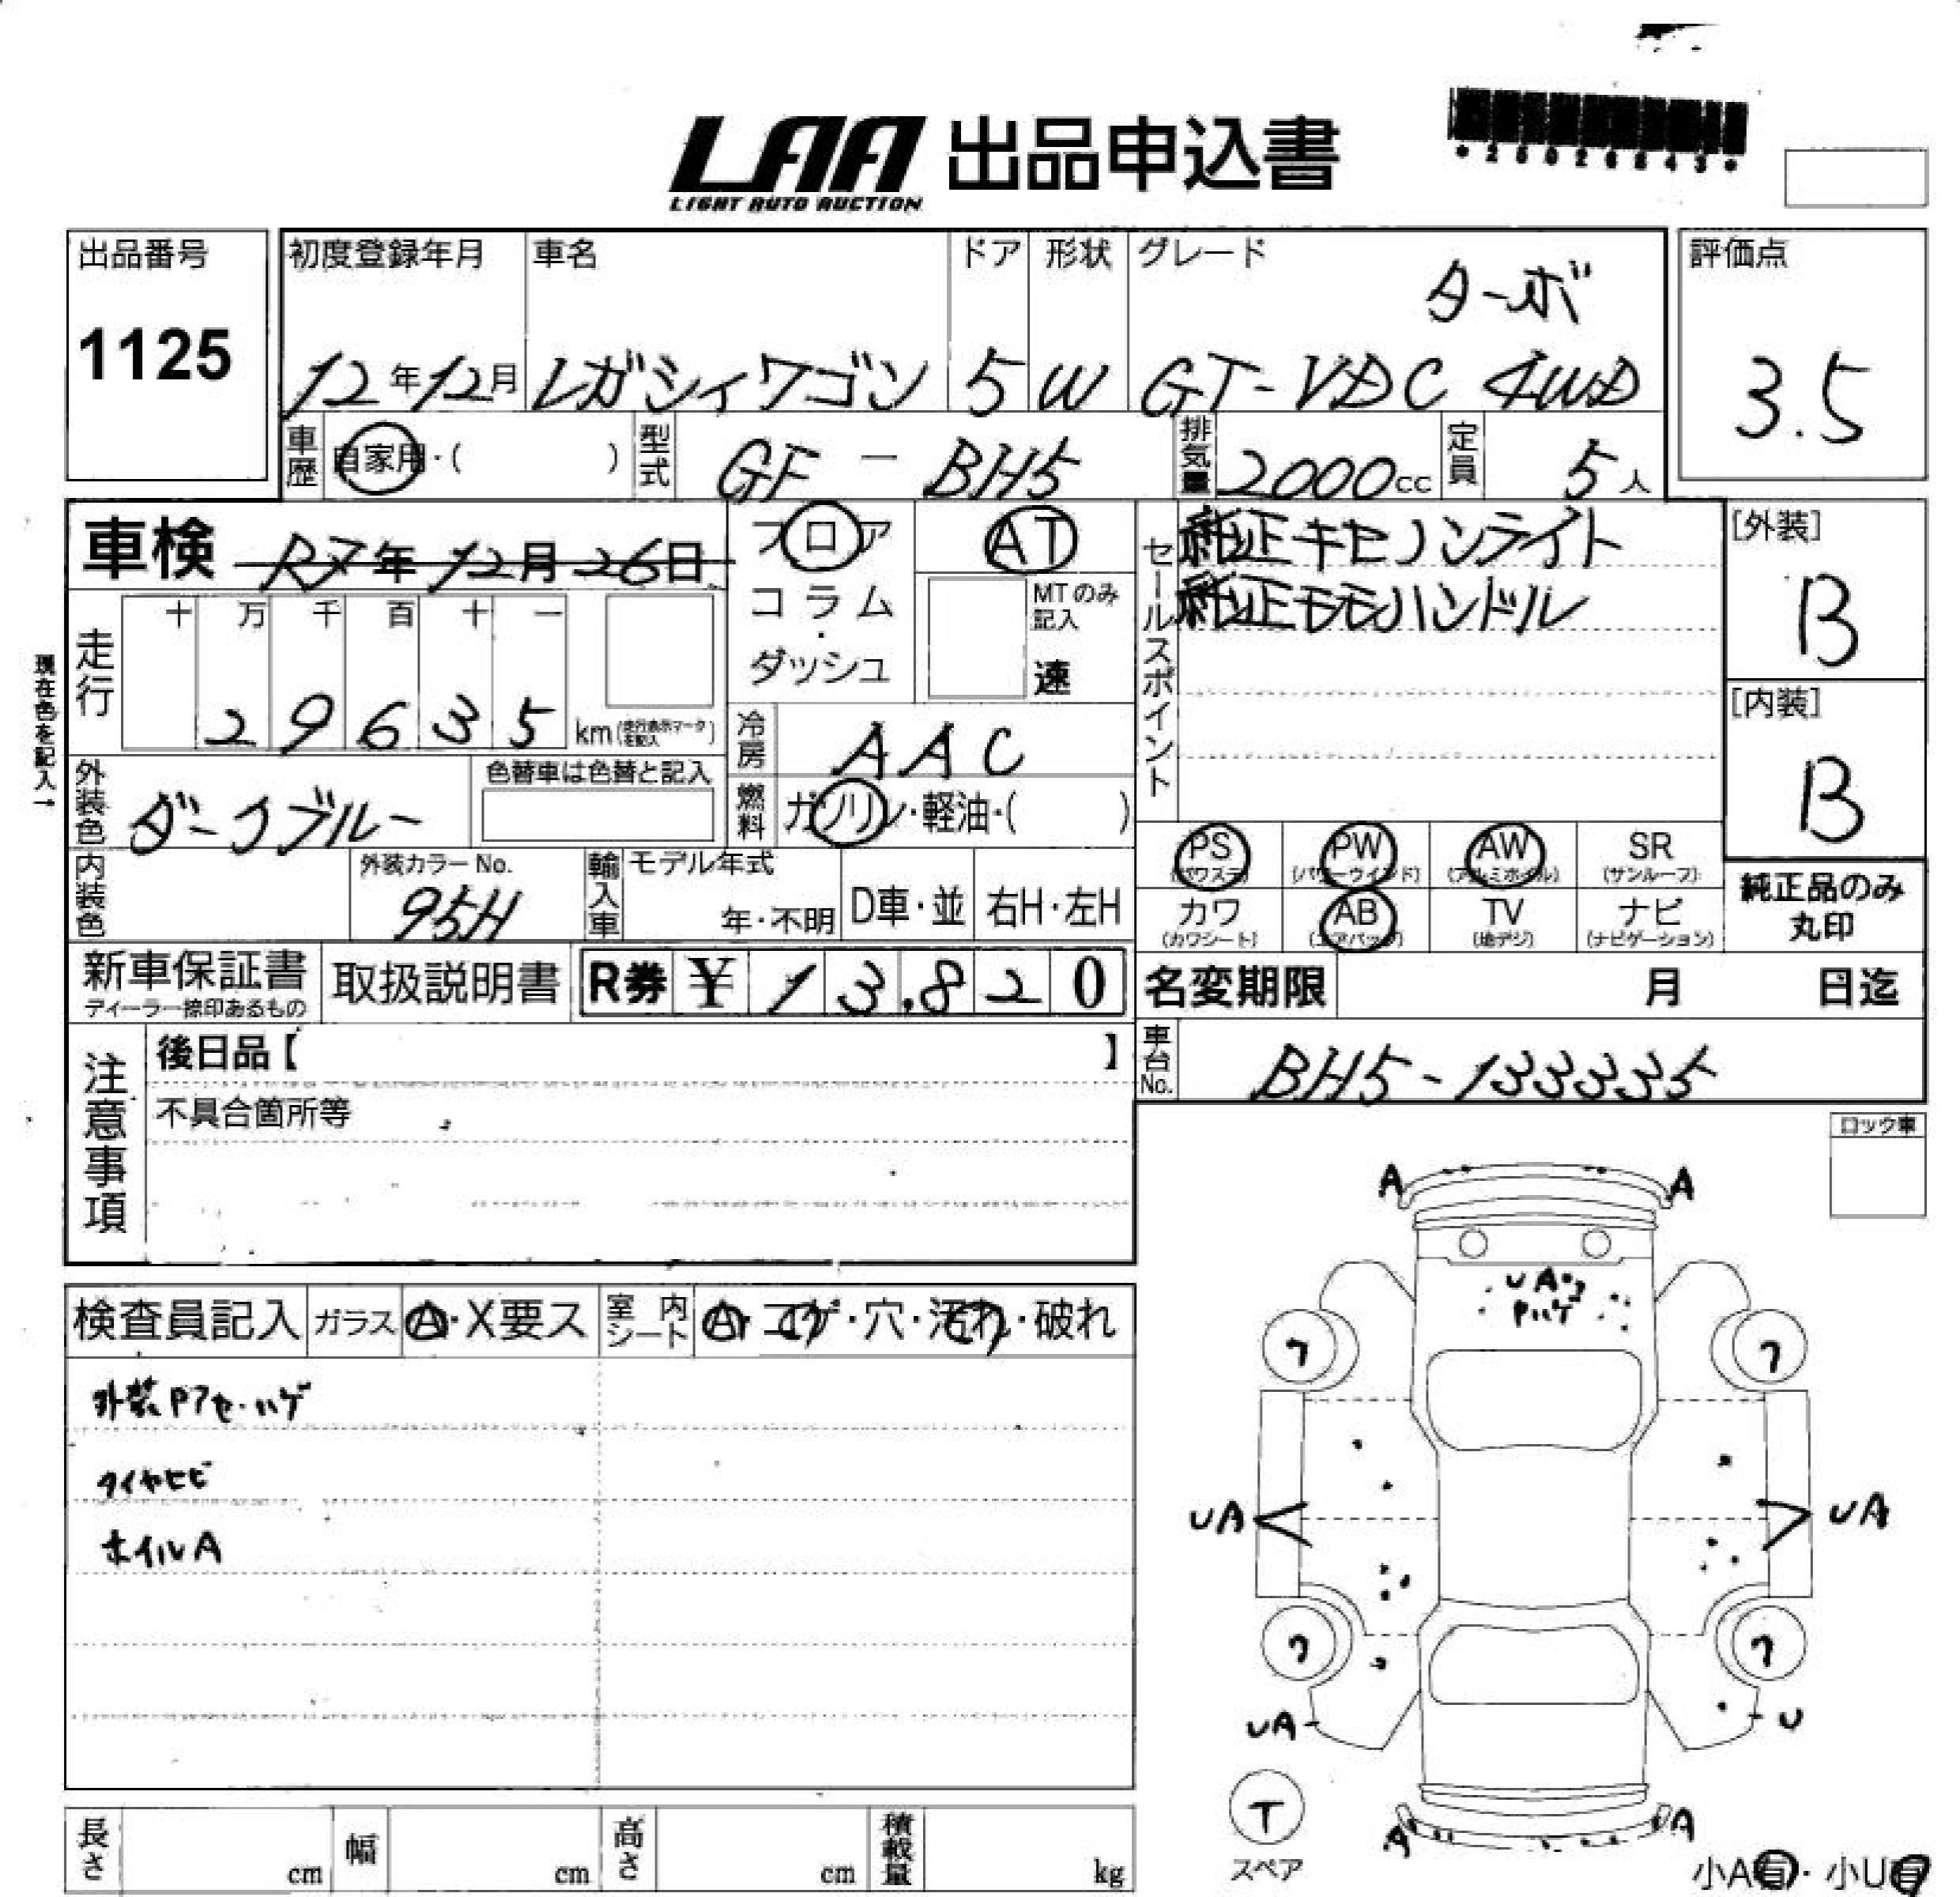 LAA 出品申込書
LIGHT AUTO AUCTION
*25026243*
出品番号
1125
初度登録年月
12年12月
車名
レガシィワゴン
ドア
5
形状
W
グレード
ターボ
GT-VDC 4WD
評価点
3.5
車歴
自家用・( )
型式
GF - BH5
排気量
2000cc
定員
5人
車検 R7年12月26日
フロア
コラム
・
ダッシュ
AT
MTのみ
記入
速
セールスポイント
純正キセノンライト
純正モモハンドル
[外装]
B
[内装]
B
現在色を記入→
走行
十 万 千 百 十 一
2 9 6 3 5 km(走行表示マークを記入)
冷房
AAC
外装色
ダークブルー
色替車は色替と記入
燃料
ガソリン・軽油・( )
PS
(パワステ)
PW
(パワーウインド)
AW
(アルミホイル)
SR
(サンルーフ)
カワ
(カワシート)
AB
(エアバッグ)
TV
(地デジ)
ナビ
(ナビゲーション)
純正品のみ
丸印
内装色
外装カラーNo.
95H
輸入車
モデル年式
年・不明
D車・並
右H・左H
新車保証書
ディーラー捺印あるもの
取扱説明書
R券 ¥ 13,820
名変期限 月 日迄
注意事項
後日品【 】
不具合箇所等
車台No.
BH5-133335
ロック車
検査員記入
ガラス
A・X要ス
室内シート
A・コゲ・穴・汚れ・破れ
外装Pアセ・ハゲ
タイヤヒビ
ホイルA
A
A
UA3
Pハゲ
ワ
ワ
UA
UA
ワ
ワ
UA
U
T
スペア
A
A
小A有・小U有
長さ cm
幅 cm
高さ cm
積載量 kg